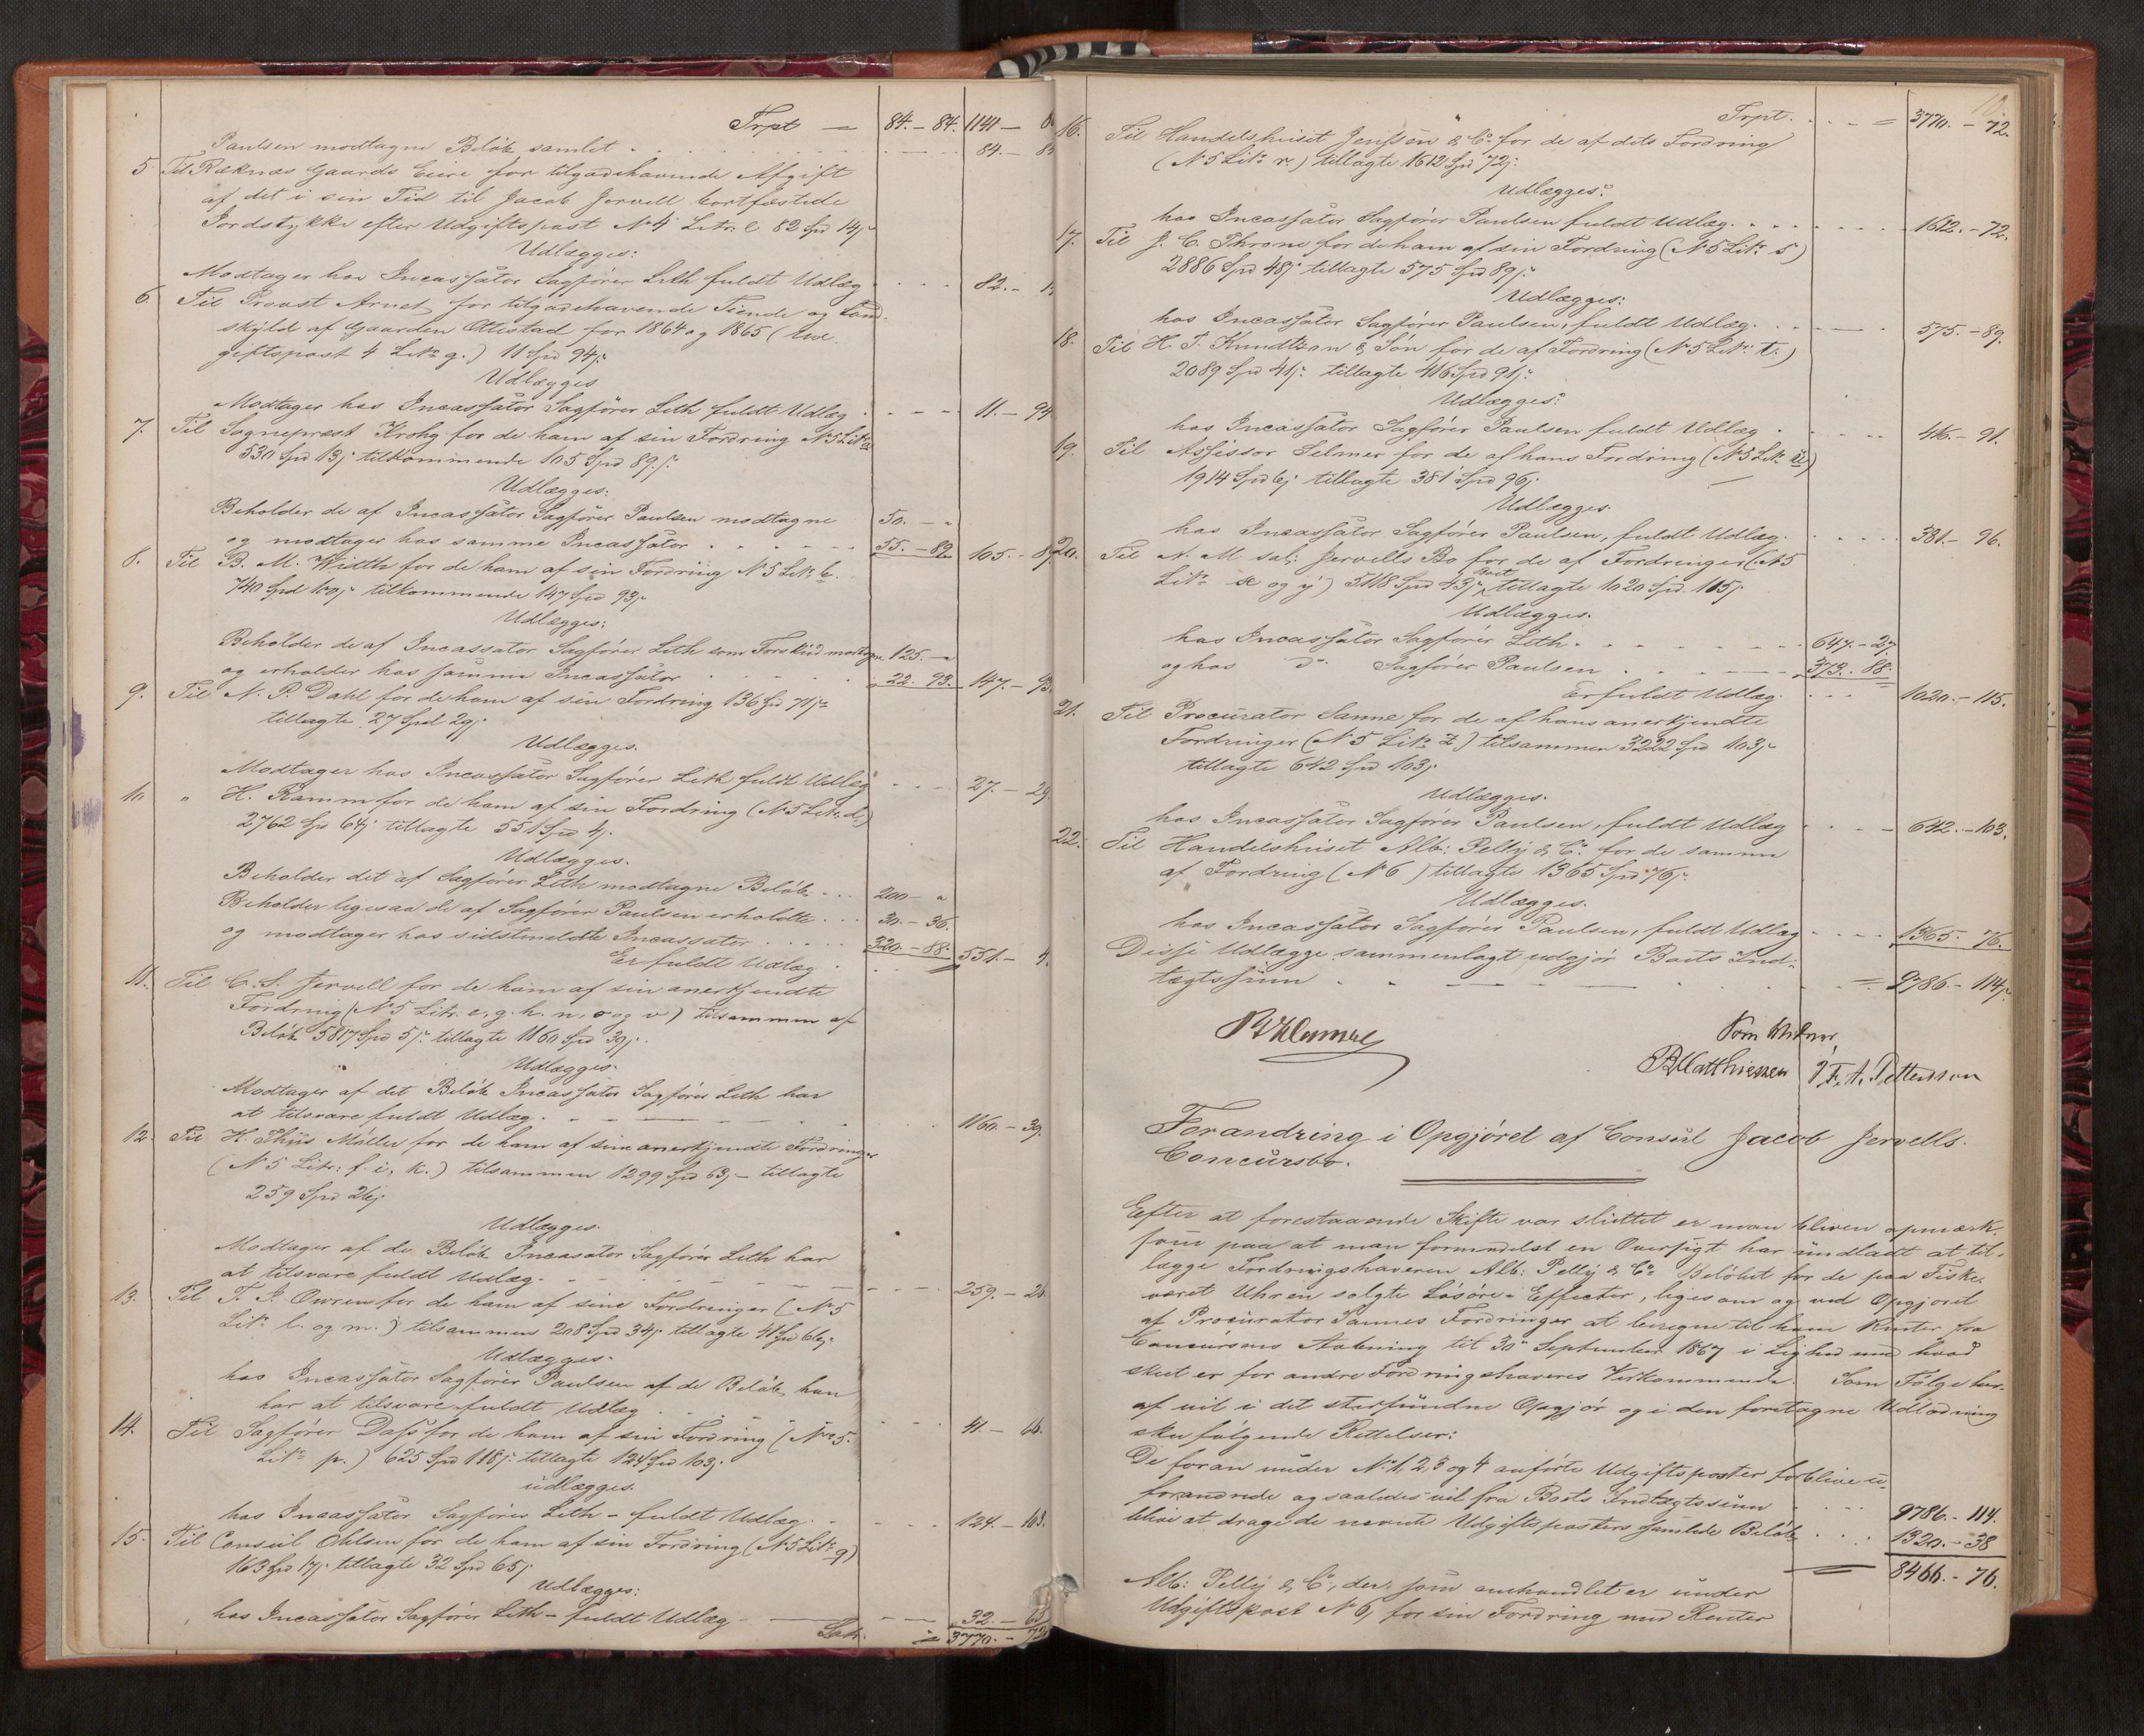 Trpt = 84. - 84. 1141 -
Paulsen modtagne Beløb samlet . . . 84. -
5 Til Ræknæs Gaards Eiere for tilgodehavende Afgift
af det i sin Tid til Jacob Jervell bortfæstede
Jordstykke efter Udgiftspost No 4 Litr. e 82 Spd 14 ƒ
Udlægges:
Modtager hos Incassator Sagfører Leth fuldt Udlæg . . . 82. -
6. Til Provst Arnet for tilgodehavende Tiende og Land-
skyld af Gaarden Ottestad for 1864 og 1865 (Ud-
giftspost 4 Litr g.) 11 Spd 94 ƒ
Udlægges
Modtager hos Incassator Sagfører Leth fuldt Udlæg . - - 11. - 94
7. Til Sognepræst Krohg for de ham af sin Fordring No 5 Litr a
530 Spd 13 ƒ tilkommende 105 Spd 89 ƒ
Udlægges:
Beholder de af Incassator Sagfører Paulsen modtagne 50. - "
og modtager hos samme Incassator . . . 55. - 89. 105. - 89.
8. Til B. M. Width for de ham af sin Fordring No 5 Litr b.
740 Spd 100 ƒ tilkommende 147 Spd 93 ƒ
Udlægges:
Beholder de af Incassator Sagfører Leth som Forskud modtagne 125. - "
og erholder hos samme Incassator . . . 22. 93. 147. - 93.
9. Til N. P. Dahl for de ham af sin Fordring 136 Spd 71 ƒ
tillagte 27 Spd 29 ƒ
Udlægges.
Modtager hos Incassator Sagfører Leth fuldt Udlæg - - - 27. - 29
10 " H. Ramm for de ham af sin Fordring (No 5 Litr. d.)
2762 Spd 64 ƒ tillagte 551 Spd 4 ƒ.
Udlægges.
Beholder det af Sagfører Leth modtagne Beløb . . . 200 - "
Beholder ligesaa de af Sagfører Paulsen erholdte . . . 30. - 36.
og modtager hos sidstmeldte Incassator . . . 320. - 88. 551. - 4.
Er fuldt Udlæg
11. Til C. S. Jervell for de ham af sin anerkjendte
Fordring (No 5 Litr. e, g. h. n, o og v) tilsammen af
Beløb 5817 Spd 5 ƒ tillagte 1160 Spd 39 ƒ.
Udlægges.
Modtager af det Beløb Incassator Sagfører Leth har
at tilsvare fuldt Udlæg. . . . 1160. - 39.
12. Til H. Thiis Møller for de ham af sine anerkjendte Fordringer
(No 5 Litr: f. i, k.) tilsammen 1299 Spd 63 ƒ - tillagte
259 Spd 26 ƒ
Udlægges.
Modtager af de Beløb Incasator Sagfører Leth har
at tilsvare fuldt Udlæg. - - - 259. - 26.
13. Til T. J. Owren for de ham af sine Fordringer (No 5
Litr l. og m.) tilsammen 208 Spd 34 ƒ tillagte 41 Spd 66 ƒ
Udlægges.
hos Incassator Sagfører Paulsen af de Beløb han
har at tilsvare fuldt Udlæg . . . 41. - 66.
14. Til Sagfører Dass for de ham af sin Fordring (No 5.
Litr p.) 625 Spd 118 ƒ tillagte 124 Spd 103 ƒ
udlægges.
hos Incassator Sagfører Leth - fuldt Udlæg. . . . 124. - 103.
15. Til Consul Ohlsen for de ham af sin Fordring (No 5 Litr q)
163 Spd 17 ƒ tillagte 32 Spd 65 ƒ
Udlægges:
hos Incassator Sagfører Leth - fuldt Udlæg - - - 32. - 65
Latr. = 3770. - 72
Trpt. . . . = 3770. - 72.
16. Til Handelshuset Jenssen & Co for de af dets Fordring
(No 5 Litr r.) tillagte 1612 Spd 72 ƒ:
Udlægges:
hos Incassator Sagfører Paulsen fuldt Udlæg. . . . 1612. - 72.
17. Til J. C. Throne for de ham af sin Fordring (No 5 Litr s)
2886 Spd 48 ƒ tillagte 575 Spd 89 ƒ:
Udlægges:
hos Incassator Sagfører Paulsen, fuldt Udlæg. . . . 575. - 89.
18. Til H. T. Knudtzon & Søn for de af Fordring (No 5 Litr t.)
2089 Spd 41 ƒ: tillagte 416 Spd 91 ƒ:
Udlægges:
hos Incassator Sagfører Paulsen fuldt Udlæg . . . 416. - 91.
19. Til Assissor Selmer for de af hans Fordring (No 5 Litr u)
1914 Spd 6 ƒ tillagte 381 Spd 96 ƒ
Udlægges.
hos Incassator Sagfører Paulsen, fuldt Udlæg. . . . 381. - 96.
20. Til A. M sal: Jervells Bo for de af Fordringer (No 5
Litr x og y) 5118 Spd 43 ƒ, tillagte 1020 Spd. 115 ƒ
Udlægges.
hos Incassator Sagfører Leth . . . 647. - 27.
og hos do Sagfører Paulsen . . . 373. 88.
Er fuldt Udlæg. . . . 1020. - 115.
21. Til Procurator Sanne for de af hans anerkjendte
Fordringer (No 5 Litr z) tilsammen 3222 Spd 103 ƒ
tillagte 642 Spd 103 ƒ
Udlægges.
hos Incassator Sagfører Paulsen, fuldt Udlæg . . . 642. - 103.
22. Til Handelshuset Alb: Pelly & Co. for de samme
af Fordring (No 6) tillagte 1365 Spd 76 ƒ.
Udlægges.
hos Incassator Sagfører Paulsen, fuldt Udlæg . . . 1365. 76.
Disse Udlægge sammenlagt udgjør Boets Ind-
tægtssum . . . = 9786. - 114 ƒ
Som Vidner,
BMatthiessen F. A. Pettersen
Forandring i Opgjøret af Consul Jacob Jervells
Concursbo.
Efter at forestaaende Skifte var sluttet er man bleven opmærk-
som paa at man formedelst en Oversigt har undladt at til-
lægge Fordringshaveren Alb: Pelly & Co Beløbet for de paa Fiske-
været Uhren solgte Løsøre-Effecter, ligesom og ved Opgjøret
af Procurator Sannes Fordringer at beregne til ham Renter fra
Concursens Aabning til 30te September 1867 i Lighed med hvad
skeet er for andre Fordringshaveres Vedkommende. Som Følge her-
af vil i det stedfundne Opgjør og i den foretagne Udlodning
ske følgende Rettelser:
De foran under No 1, 2, 3 og 4 anførte Udgiftsposter forblive u-
forandrede og saaledes vil fra Boets Indtægtssum . . . 9786. - 114.
blive at drage de nævnte Udgiftsposters samlede Beløb . . . 1320. - 38
= 8466. - 76.
Alb: Pelly & Co, der, som omhandlet er under
Udgiftspost No 6, for sin Fordring med Renter